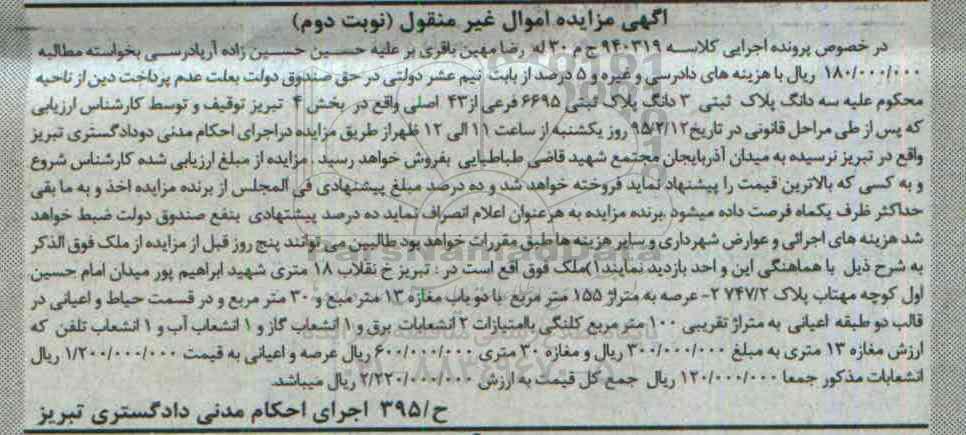 آگهی مزایده اموال غیر منقول (نوبت دوم)
در خصوص پرونده اجرایی کلاسه ۹۴۰۳۱۹ ج م ۳۰ له رضا مهین باقری بر علیه حسین حسین زاده آرپادرسی بخواسته مطالبه
۱۸۰/۰۰۰/۰۰۰ ریال با هزینه های دادرسی و غیره و ۵ درصد از بابت نیم عشر دولتی در حق صندوق دولت بعلت عدم پرداخت دین از ناحیه
محکوم علیه سه دانگ پلاک ثبتی ۳ دانگ پلاک ثبتی ۶۶۹۵ فرعی از ۴۳ اصلی واقع در بخش ۴ تبریز توقیف و توسط کارشناس ارزیابی
که پس از طی مراحل قانونی در تاریخ ۹۵/۲/۱۲ روز یکشنبه از ساعت ۱۱ الی ۱۲ ظهر از طریق مزایده در اجرای احکام مدنی دو دادگستری تبریز
واقع در تبریز نرسیده به میدان آذربایجان مجتمع شهید قاضی طباطبایی بفروش خواهد رسید . مزایده از مبلغ ارزیابی شده کارشناس شروع
و به کسی که بالاترین قیمت را پیشنهاد نماید فروخته خواهد شد و ده درصد مبلغ پیشنهادی فی المجلس از برنده مزایده اخذ و به ما بقی
حداکثر ظرف یکماه فرصت داده میشود .برنده مزایده به هر عنوان اعلام انصراف نماید ده درصد پیشنهادی بنفع صندوق دولت ضبط خواهد
شد هزینه های اجرائی و عوارض شهرداری و سایر هزینه ها طبق مقررات خواهد بود طالبین می توانند پنج روز قبل از مزایده از ملک فوق الذکر
به شرح ذیل با هماهنگی این و احد بازدید نمایند۱)ملک فوق اقع است در : تبریز خ نقلاب ۱۸ متری شهید ابراهیم پور میدان امام حسین
اول کوچه مهتاب پلاک ۷۴۷/۲ ۲- عرصه به متراژ ۱۵۵ متر مربع با دو باب مغازه ۱۳ متر مبع و ۳۰ متر مربع و در قسمت حیاط و اعیانی در
قالب دو طبقه اعیانی به متراژ تقریبی ۱۰۰ متر مربع کلنگی باامتیازات ۲ انشعابات برق و ۱ انشعاب گاز و ۱ انشعاب آب و ۱ انشعاب تلفن که
ارزش مغازه ۱۳ متری به مبلغ ۳۰۰/۰۰۰/۰۰۰ ریال و مغازه ۳۰ متری ۶۰۰/۰۰۰/۰۰۰ ریال عرصه و اعیانی به قیمت ۱/۲۰۰/۰۰۰/۰۰۰ ریال
انشعابات مذکور جمعا ۱۲۰/۰۰۰/۰۰۰ ریال جمع کل قیمت به ارزش ۲/۲۲۰/۰۰۰/۰۰۰ ریال میباشد.
ح/۳۹۵ اجرای احکام مدنی دادگستری تبریز
ParsNamadData